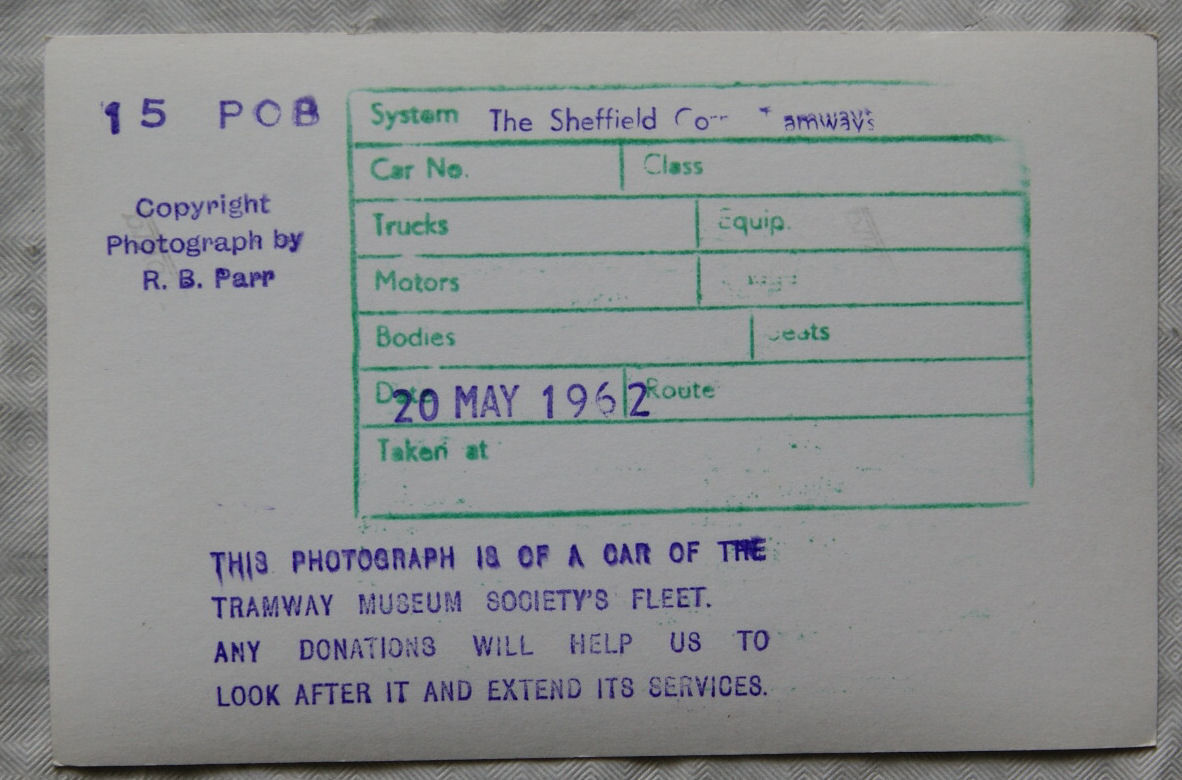 15 POB
Copyright
Photograph by
R. B. Parr
System The Sheffield
Car No. Class
Trucks Equip.
Motors
Bodies Seats
Date 20 MAY 1962 Route
Taken at
THIS PHOTOGRAPH IS OF A CAR OF THE
TRAMWAY MUSEUM SOCIETY'S FLEET.
ANY DONATIONS WILL HELP US TO
LOOK AFTER IT AND EXTEND ITS SERVICES.